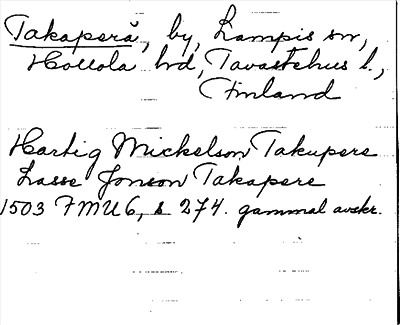 Takaperä, by, Lampis sn,
Hollola hd, Tavastehus l.,
Finland
Hartig Mickelson Takupere
Lasse Jonson Takapere
1503 FMU 6, s 274. gammal avskr.